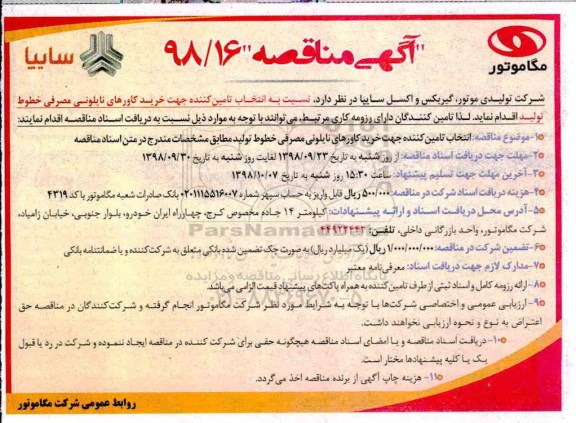 سایپا
"آگهی مناقصه" ۹۸/۱۶
مگاموتور
شرکت تولیدی موتور، گیربکس و اکسل سایپا در نظر دارد، نسبت به انتخاب تامین کننده جهت خرید کاورهای نایلونی مصرفی خطوط
تولید اقدام نماید. لذا تامین کنندگان دارای رزومه کاری مرتبط، می‌توانند با توجه به موارد ذیل نسبت به دریافت اسناد مناقصه اقدام نمایند:
۱- موضوع مناقصه: انتخاب تامین کننده جهت خرید کاورهای نایلونی مصرفی خطوط تولید مطابق مشخصات مندرج در متن اسناد مناقصه
۲- مهلت جهت دریافت اسناد مناقصه: از روز شنبه به تاریخ ۱۳۹۸/۰۹/۲۳ لغایت روز شنبه به تاریخ ۱۳۹۸/۰۹/۳۰
۳- آخرین مهلت جهت تسلیم پیشنهاد: ساعت ۱۵:۳۰ روز شنبه به تاریخ ۱۳۹۸/۱۰/۰۷
۴- هزینه دریافت اسناد شرکت در مناقصه: ۵۰۰/۰۰۰ ریال قابل واریز به حساب سپهر شماره ۰۲۰۱۱۱۵۵۱۶۰۰۷ بانک صادرات شعبه مگاموتور با کد ۴۳۱۹
۵- آدرس محل دریافت اسناد و ارائه پیشنهادات: کیلومتر ۱۴ جاده مخصوص کرج، چهارراه ایران خودرو، بلوار جنوبی، خیابان زامیاد،
شرکت مگاموتور، واحد بازرگانی داخلی، تلفن:
۶- تضمین شرکت در مناقصه: ۱/۰۰۰/۰۰۰/۰۰۰ ریال (یک میلیارد ریال) به صورت چک تضمین شده بانکی متعلق به شرکت‌کننده و یا ضمانتنامه بانکی
۷- مدارک لازم جهت دریافت اسناد: معرفی‌نامه معتبر
۸- ارائه رزومه کامل و اسناد ثبتی از طرف تامین کننده به همراه پاکت‌های پیشنهاد قیمت الزامی می‌باشد.
۹- ارزیابی عمومی و اختصاصی شرکت‌ها با توجه به شرایط مورد نظر شرکت مگاموتور انجام گرفته و شرکت‌کنندگان در مناقصه حق
اعتراض به نوع و نحوه ارزیابی نخواهند داشت.
۱۰- دریافت اسناد مناقصه و یا امضای اسناد مناقصه هیچگونه حقی برای شرکت کننده در مناقصه ایجاد ننموده و شرکت در رد یا قبول
یک یا کلیه پیشنهادها مختار است.
۱۱- هزینه چاپ آگهی از برنده مناقصه اخذ می‌گردد.
روابط عمومی شرکت مگاموتور